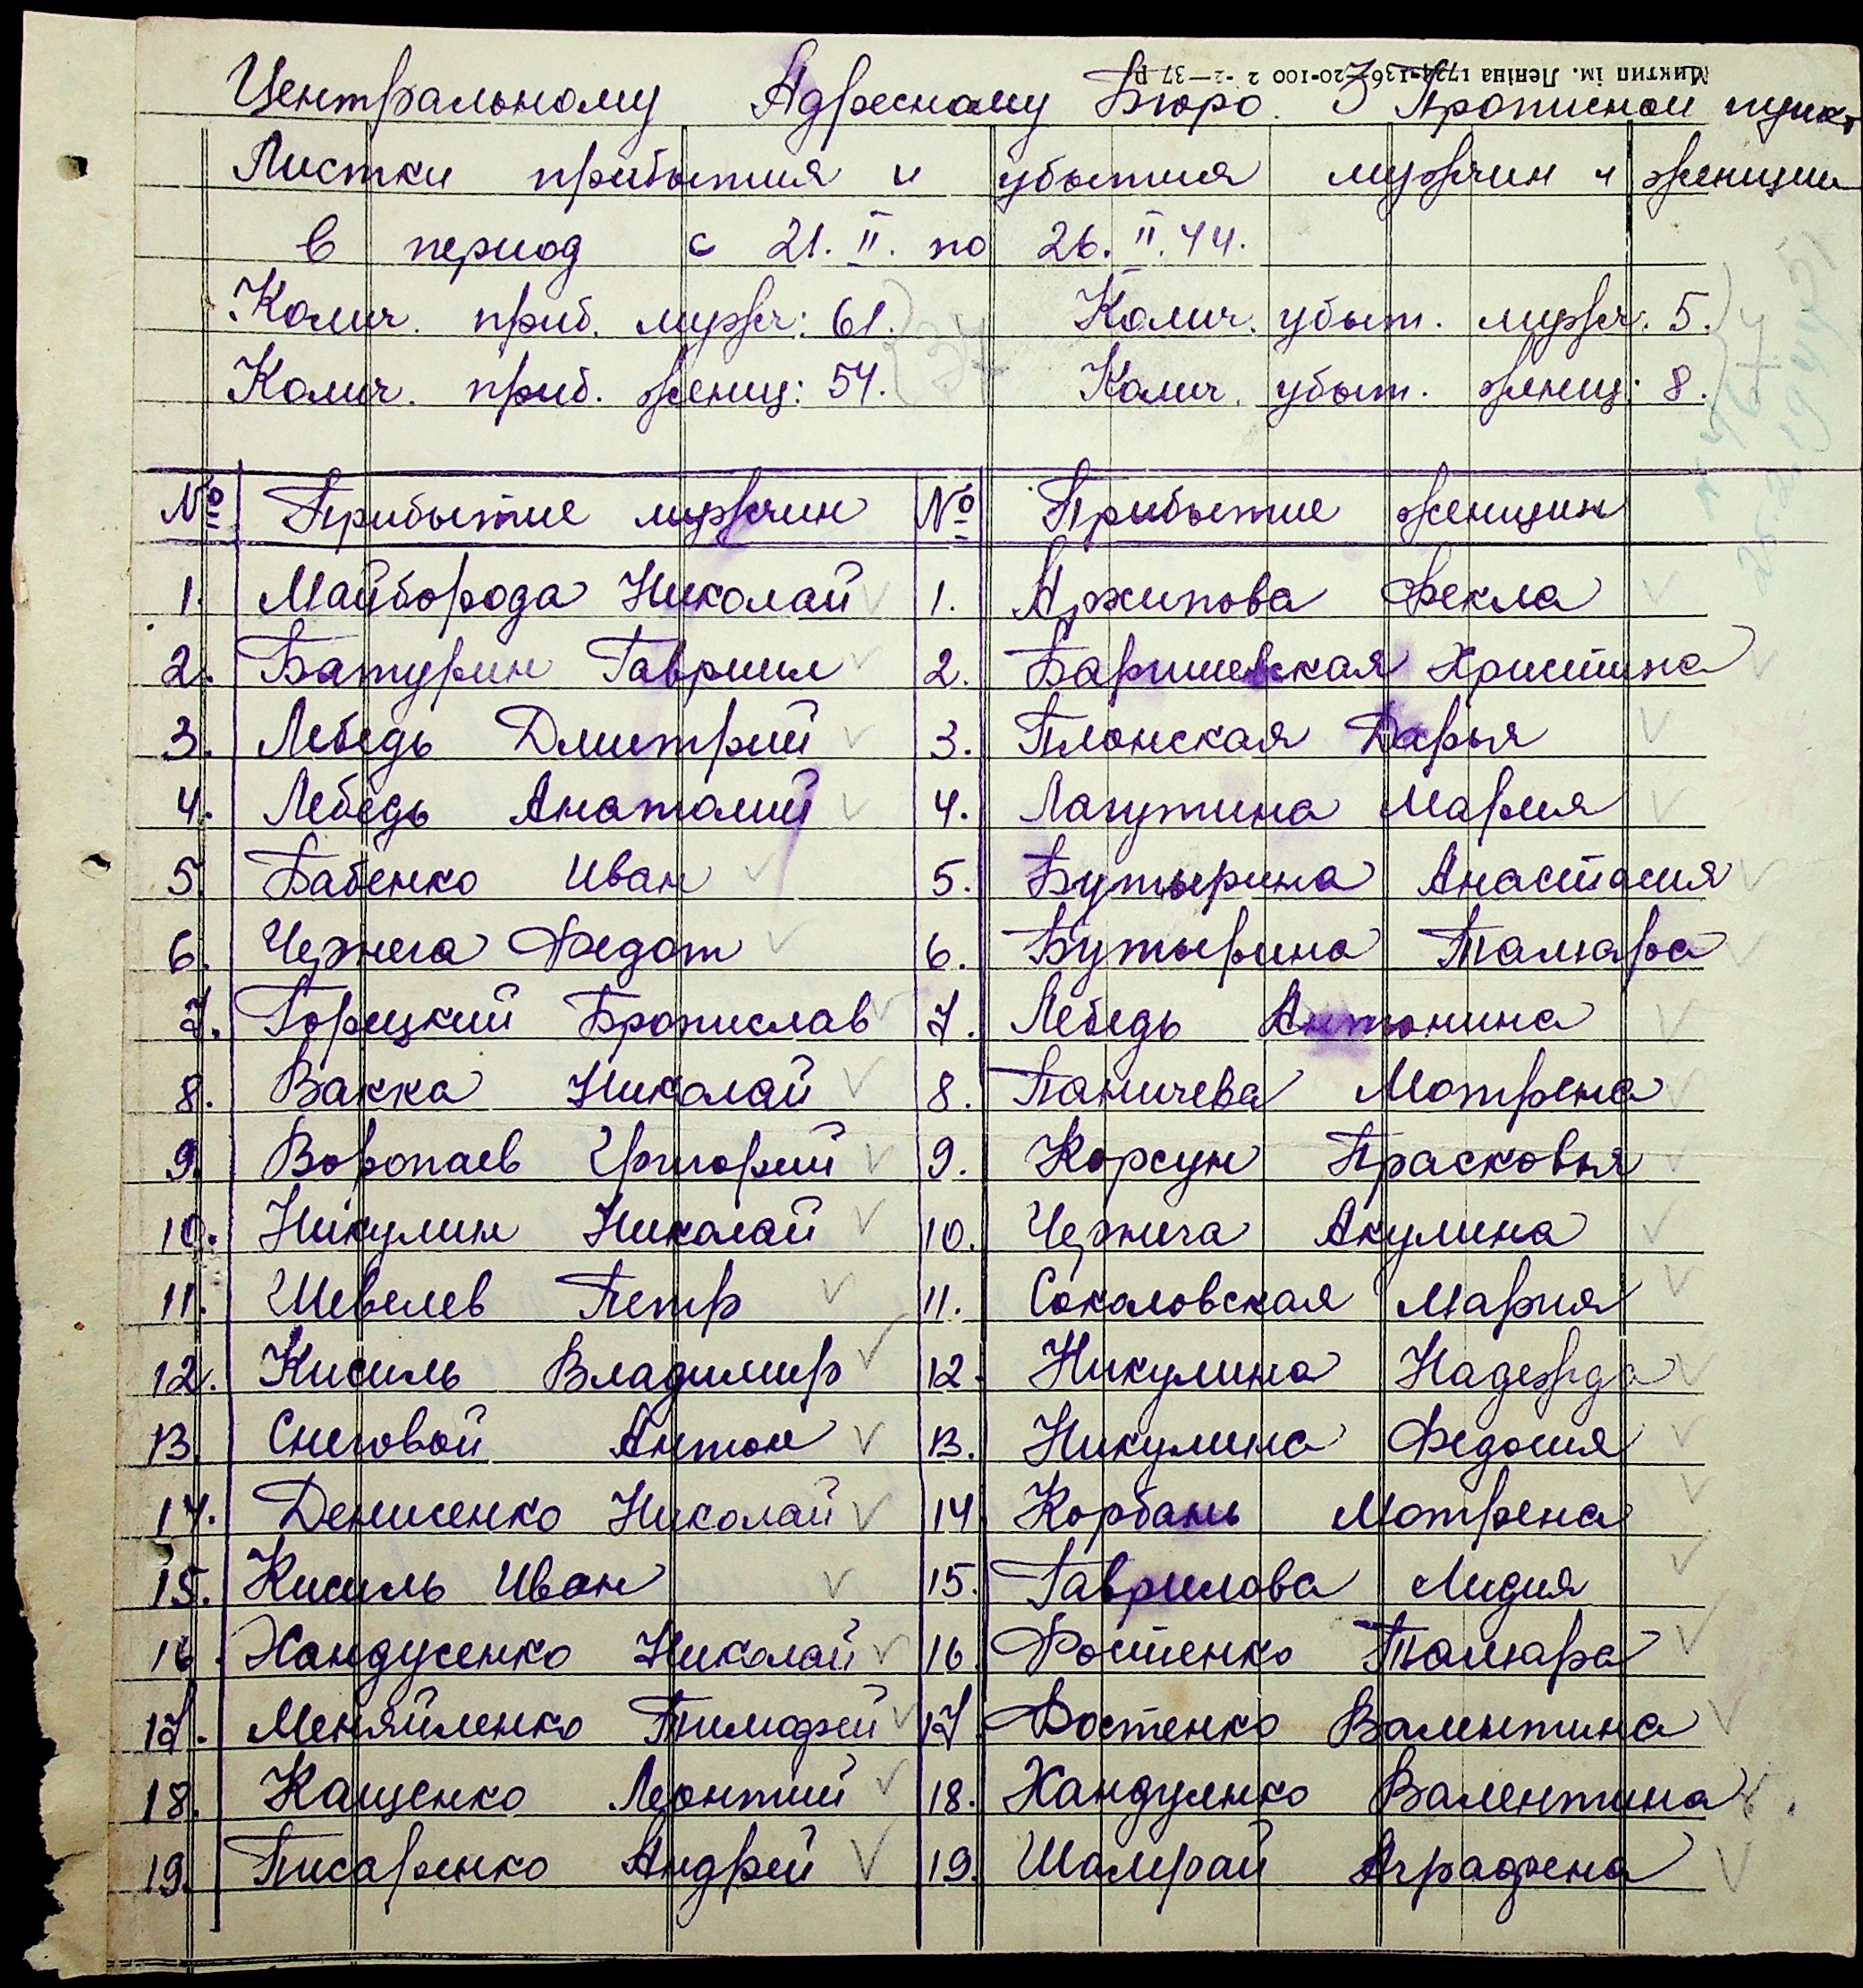 Миктип ім. Леніна 1724-136-20-100 2 -2-37 р.
Центральному Адресному Бюро. 3 Прописной пункт
Листки прибытия и убытия мужчин и женщин
в период с 21. II. по 26. II. 44.
Колич. приб. мужч: 61. Колич. убыт. мужч: 5.
Колич. приб. женщ: 54. Колич. убыт. женщ: 8.
№ Прибытие мужчин № Прибытие женщин
1. Майборода Николай 1. Архипова Фекла
2. Батурин Гавриил 2. Баришевская Христина
3. Лебедь Дмитрий 3. Плонская Дарья
4. Лебедь Анатолий 4. Лагутина Мария
5. Бабенко Иван 5. Бутырина Анастасия
6. Чернега Федот 6. Бутырина Тамара
7. Горецкий Бронислав 7. Лебедь Антонина
8. Вакка Николай 8. Паничева Мотрена
9. Воропаев Григорий 9. Корсун Прасковья
10. Никулин Николай 10. Чернега Акулина
11. Шевелев Петр 11. Соколовская Мария
12. Кисиль Владимир 12. Никулина Надежда
13. Снеговой Антон 13. Никулина Федосия
14. Денисенко Николай 14 Корбань Мотрена
15. Кисиль Иван 15. Гаврилова Лидия
16. Хандусенко Николай 16 Фостенко Тамара
17. Меняйленко Тимофей 17 Фостенко Валентина
18. Кащенко Леонтий 18. Хандуенко Валентина
19. Писаренко Андрей 19. Шамрай Аграфена